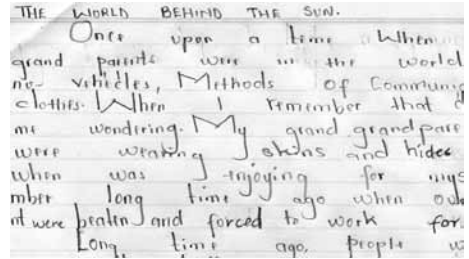 THE WORLD BEHIND THE SUN.
Once upon a time When
grand parents were in the world
no vehicles, Methods of Communic
clothes. When I remember that
me wondering. My grand grandpare
were wearing skins and hides
when was enjoying for mys
mber long time ago when our
nt were beaten and forced to work for
Long time ago, people w